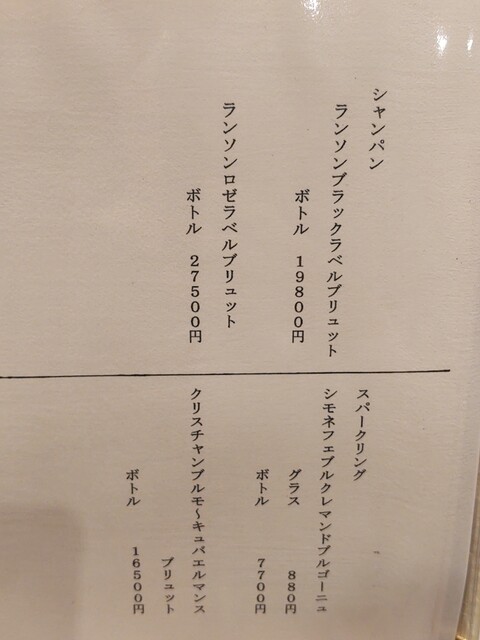 シャンパン
ランソンブラックラベルブリュット
ボトル 19800円
ランソンロゼラベルブリュット
ボトル 27500円
スパークリング
シモネフェブルクレマンドブルゴーニュ
グラス 880円
ボトル 7700円
クリスチャンブルモ～キュバエルマンス
ブリュット
ボトル 16500円